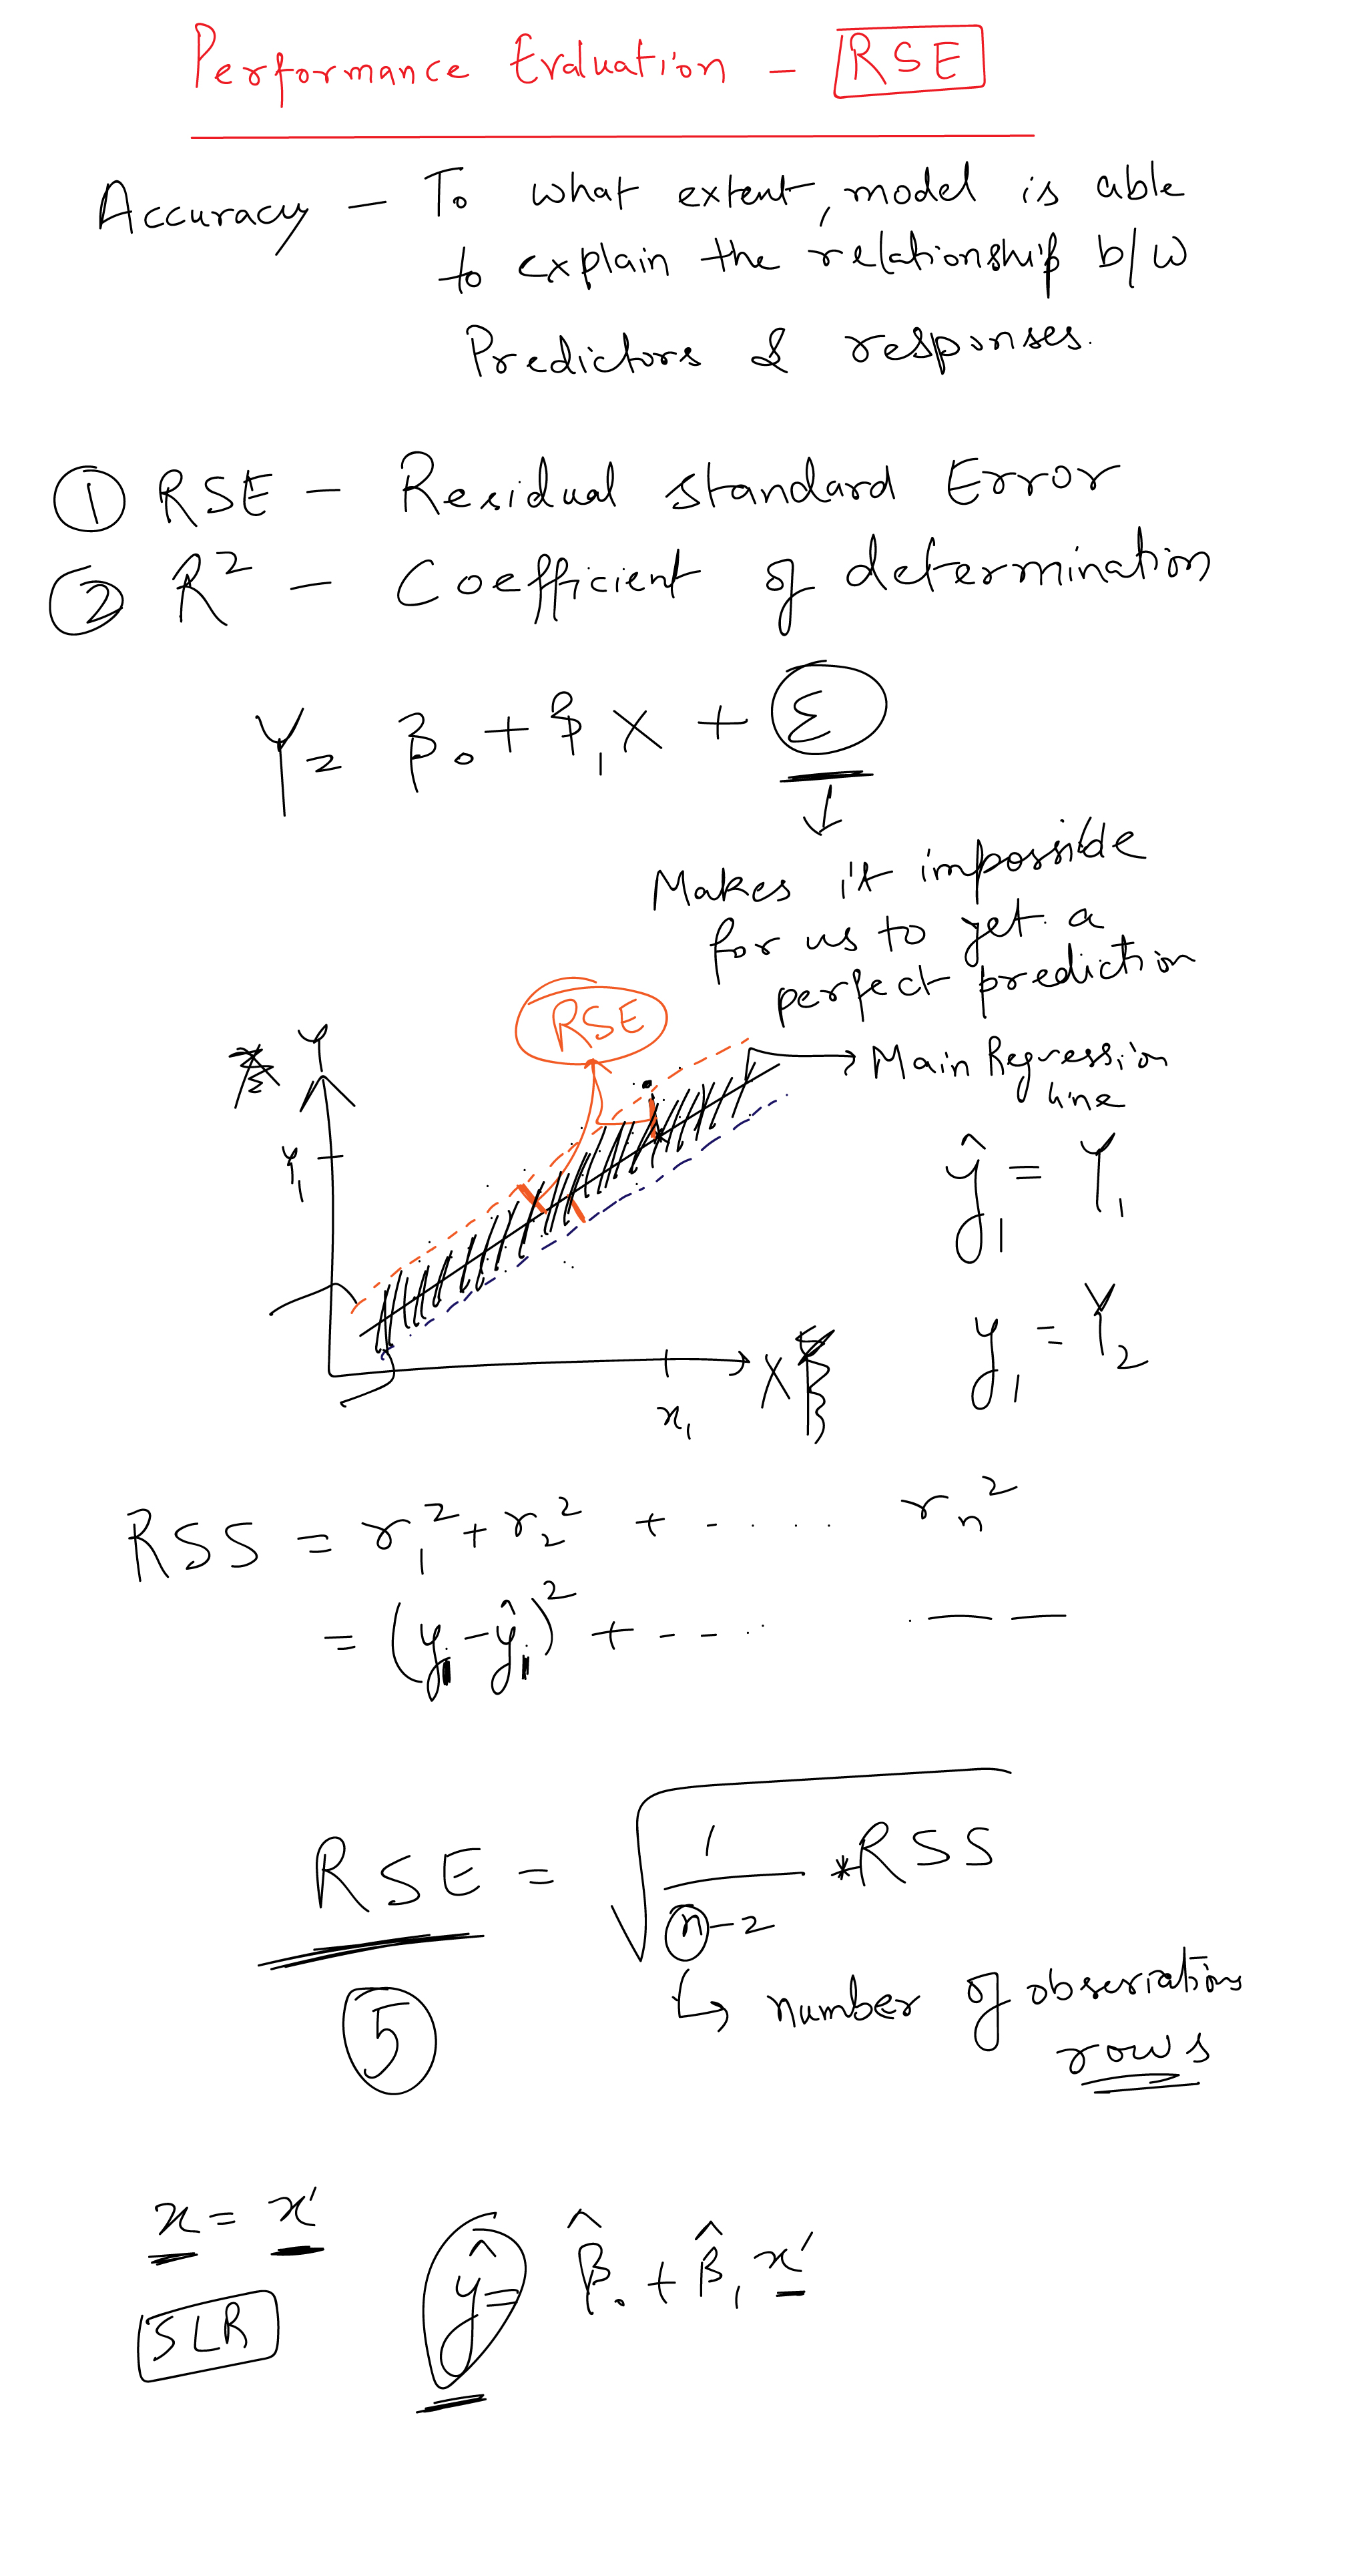 Performance Evaluation - RSE
Accuracy - To what extent, model is able
to explain the relationship b/w
Predictors & responses.
① RSE - Residual standard Error
② R² - Coefficient of determination
Y = β₀ + β₁X + ε
Makes it impossible
for us to get a
perfect prediction
RSE
Y
Main Regression
line
Y₁
ŷ₁ = Y₁
y₁ = Y₂
X
x₁
RSS = r₁² + r₂² + - . . . . rₙ²
= (yᵢ - ŷᵢ)² + - - - . . — —
RSE = √(1/(n-2) * RSS)
number of observations
rows
5
x = x'
ŷ = β̂₀ + β̂₁ x'
SLR